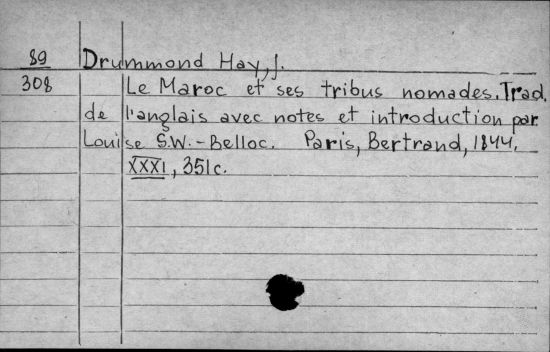 89 Drummond Hay, J.
308 Le Maroc et ses tribus nomades. Trad.
de l'anglais avec notes et introduction par
Louise S.W.-Belloc. Paris, Bertrand, 1844.
XXXI, 351c.